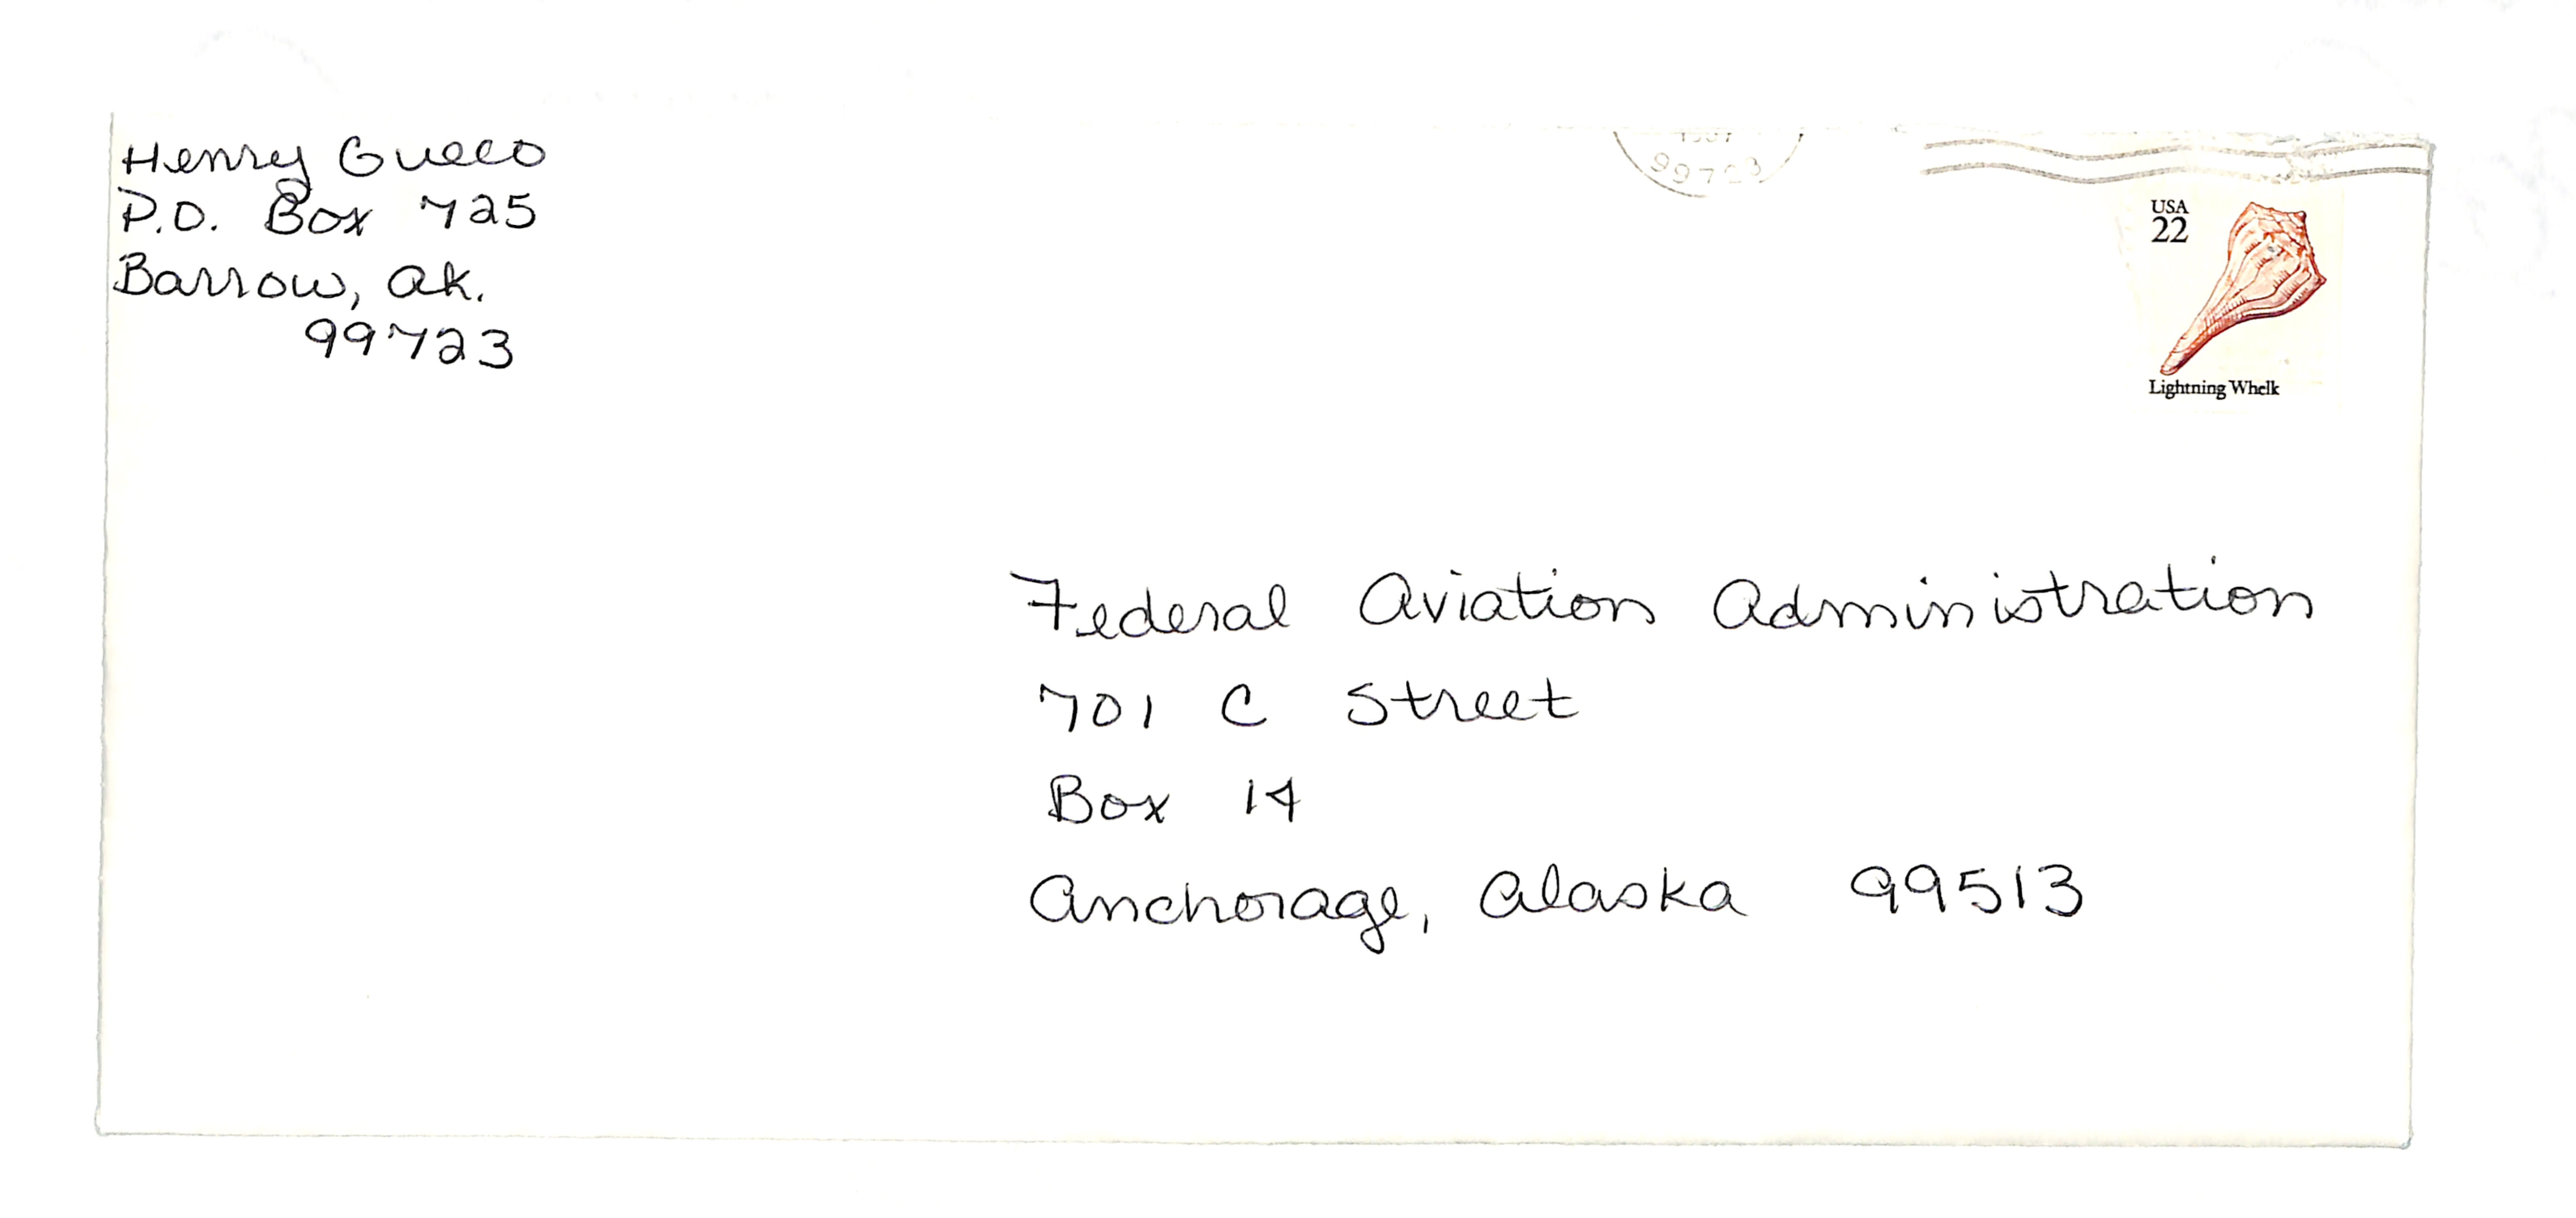 Henry Gueco
P.O. Box 725
Barrow, Ak.
99723
99723
USA
22
Lightning Whelk
Federal Aviation Administration
701 C Street
Box 14
Anchorage, Alaska 99513